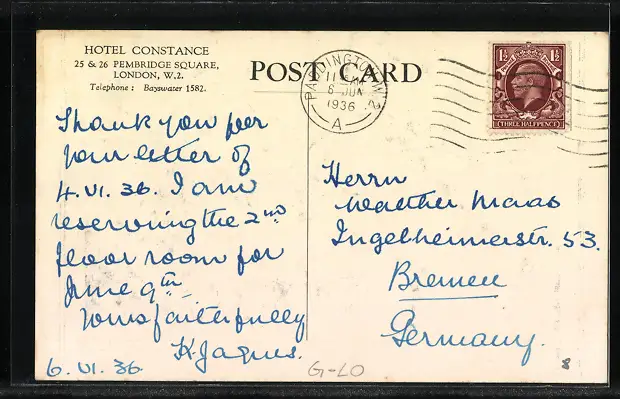 HOTEL CONSTANCE
25 & 26 PEMBRIDGE SQUARE,
LONDON, W.2.
Telephone: Bayswater 1582.
POST CARD
PADDINGTON. W.2
11 AM
6 JUN
1936
A
1½ 1½
THREE HALFPENCE
Thank you for
your letter of
4.VI.36. I am
reserving the 2nd
floor room for
June 9th
Yours faithfully
K. Jaques.
6.VI.36
Herrn
Walther Maas
Ingelheimerstr. 53.
Bremen
Germany.
G-LO
8